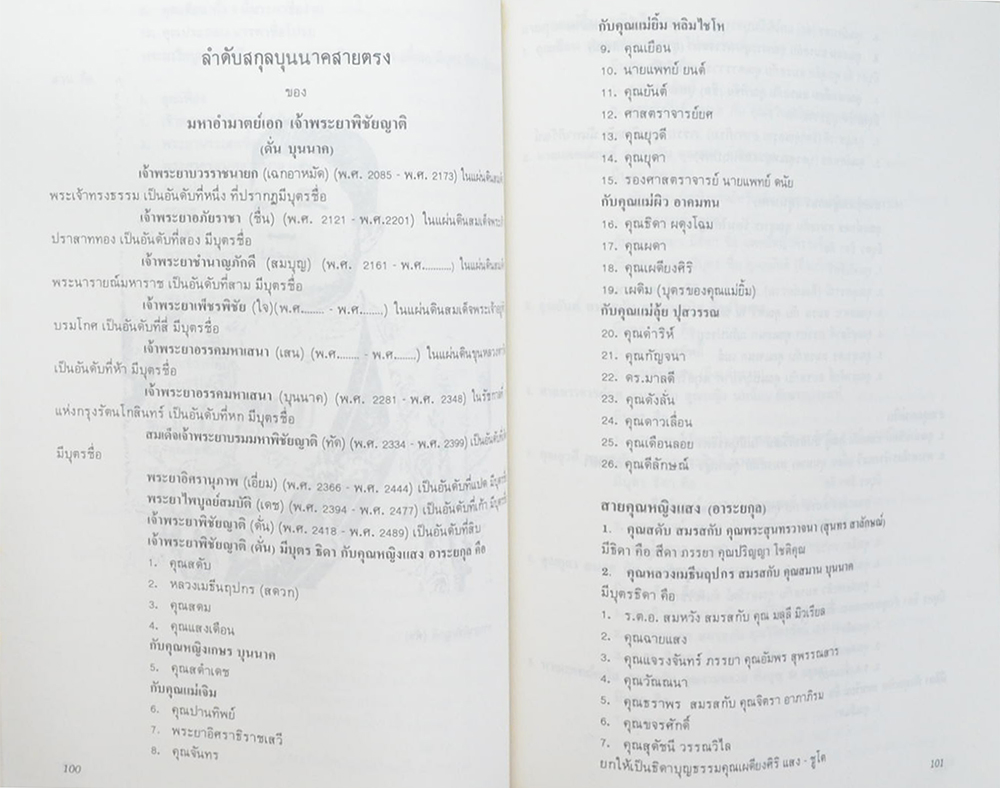 ลำดับสกุลบุนนาคสายตรง
ของ
มหาอำมาตย์เอก เจ้าพระยาพิชัยญาติ
(ดั่น บุนนาค)
เจ้าพระยาบวรราชนายก (เฉกอาหมัด) (พ.ศ. 2085 - พ.ศ. 2173) ในแผ่นดินสมเด็จ
พระเจ้าทรงธรรม เป็นอันดับที่หนึ่ง ที่ปรากฏมีบุตรชื่อ
เจ้าพระยาอภัยราชา (ชื่น) (พ.ศ. 2121 - พ.ศ.2201) ในแผ่นดินสมเด็จพระเจ้า
ปราสาททอง เป็นอันดับที่สอง มีบุตรชื่อ
เจ้าพระยาชำนาญภักดี (สมบุญ) (พ.ศ. 2161 - พ.ศ..........) ในแผ่นดินสมเด็จ
พระนารายณ์มหาราช เป็นอันดับที่สาม มีบุตรชื่อ
เจ้าพระยาเพ็ชรพิชัย (ใจ)(พ.ศ........ - พ.ศ........) ในแผ่นดินสมเด็จพระเจ้าอยู่หัว
บรมโกศ เป็นอันดับที่สี่ มีบุตรชื่อ
เจ้าพระยาอรรคมหาเสนา (เสน) (พ.ศ........ - พ.ศ.......) ในแผ่นดินขุนหลวง
เป็นอันดับที่ห้า มีบุตรชื่อ
เจ้าพระยาอรรคมหาเสนา (บุนนาค) (พ.ศ. 2281 - พ.ศ. 2348) ในรัชกาลที่
แห่งกรุงรัตนโกสินทร์ เป็นอันดับที่หก มีบุตรชื่อ
สมเด็จเจ้าพระยาบรมมหาพิชัยญาติ (ทัต) (พ.ศ. 2334 - พ.ศ. 2399) เป็นอันดับที่
มีบุตรชื่อ
พระยาอิศรานุภาพ (เอี่ยม) (พ.ศ. 2366 - พ.ศ. 2444) เป็นอันดับที่แปด มีบุตรชื่อ
พระยาไพบูลย์สมบัติ (เดช) (พ.ศ. 2394 - พ.ศ. 2477) เป็นอันดับที่เก้า มีบุตรชื่อ
เจ้าพระยาพิชัยญาติ (ดั่น) (พ.ศ. 2418 - พ.ศ. 2489) เป็นอันดับที่สิบ
เจ้าพระยาพิชัยญาติ (ดั่น) มีบุตร ธิดา กับคุณหญิงแสง อาระยกุล คือ
1. คุณสดับ
2. หลวงเมธีนฤปกร (สดวก)
3. คุณสดม
4. คุณแสงเดือน
กับคุณหญิงเกษร บุนนาค
5. คุณสดำเดช
กับคุณแม่เจิม
6. คุณปานทิพย์
7. พระยาอิศราธิราชเสวี
8. คุณจันทร
100
กับคุณแม่ยิ้ม หลิมไชโห
9. คุณเยือน
10. นายแพทย์ ยนต์
11. คุณยันต์
12. ศาสตราจารย์ยศ
13. คุณยุวดี
14. คุณยุดา
15. รองศาสตราจารย์ นายแพทย์ ดนัย
กับคุณแม่ผิว อาคมทน
16. คุณธิดา ผดุงโฉม
17. คุณผดา
18. คุณเผดียงศิริ
19. เผดิม (บุตรของคุณแม่ยิ้ม)
กับคุณแม่ลุ้ย ปุสวรรณ
20. คุณดำริห์
21. คุณกัญจนา
22. ดร.มาลดี
23. คุณดังลั่น
24. คุณดาวเลื่อน
25. คุณเดือนลอย
26. คุณดีลักษณ์
สายคุณหญิงแสง (อาระยกุล)
1. คุณสดับ สมรสกับ คุณพระสุนทรวาจนา (สุนทร สาลักษณ์)
มีธิดา คือ สีดา ภรรยา คุณปริญญา โชติคุณ
2. คุณหลวงเมธีนฤปกร สมรสกับ คุณสมาน บุนนาค
มีบุตรธิดา คือ
1. ร.ต.อ. สมหวัง สมรสกับ คุณ มลุลี มิวเรียล
2. คุณฉายแสง
3. คุณแจรงจันทร์ ภรรยา คุณอัมพร สุพรรณสาร
4. คุณวัณณนา
5. คุณธราพร สมรสกับ คุณจิตรา อาภาภิรม
6. คุณขจรศักดิ์
7. คุณสุดัชนี วรรณวิไล
ยกให้เป็นธิดาบุญธรรมคุณเผดียงศิริ แสง - ชูโต
101